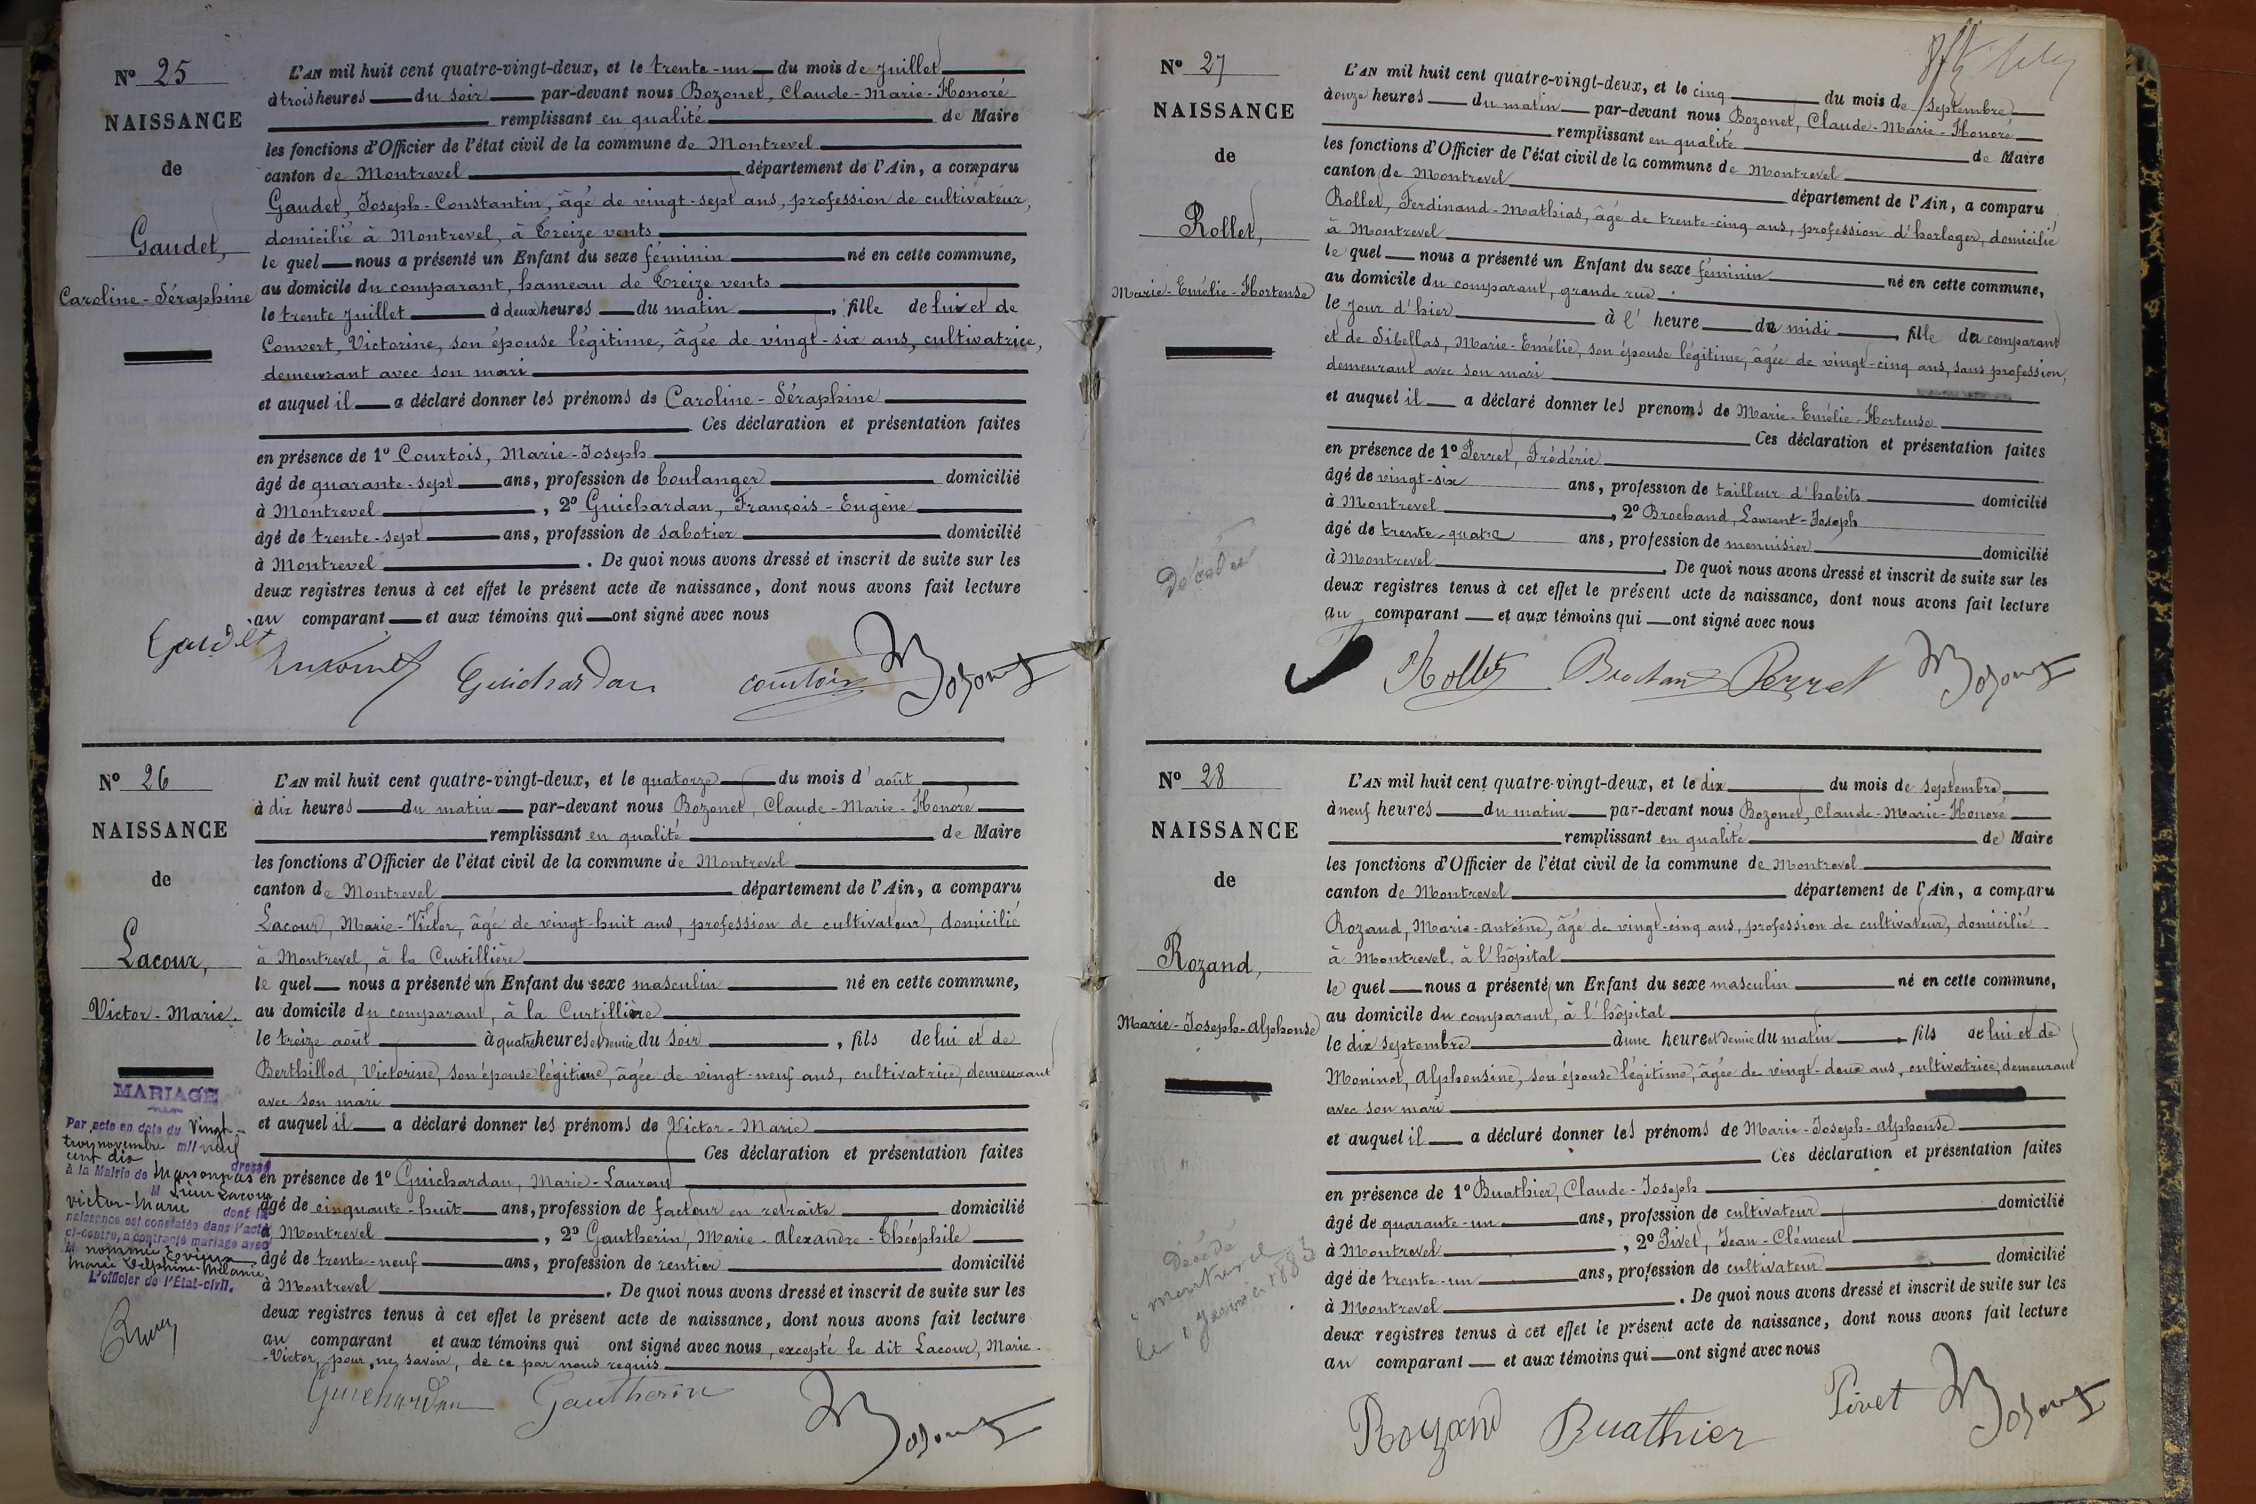 N° 25
NAISSANCE
de
Gaudet,
Caroline-Séraphine
L'AN mil huit cent quatre-vingt-deux, et le trente-un du mois de juillet
à trois heures du soir par-devant nous Bozonet, Claude-Marie-Honoré
remplissant en qualité de Maire
les fonctions d'Officier de l'état civil de la commune de Montrevel
canton de Montrevel département de l'Ain, a comparu
Gaudet, Joseph-Constantin, âgé de vingt-sept ans, profession de cultivateur,
domicilié à Montrevel, à Treize vents
le quel nous a présenté un Enfant du sexe féminin né en cette commune,
au domicile du comparant, hameau de Treize vents
le trente juillet à deux heures du matin, fille de lui et de
Convert, Victorine, son épouse légitime, âgée de vingt-six ans, cultivatrice,
demeurant avec son mari
et auquel il a déclaré donner les prénoms de Caroline-Séraphine
Ces déclaration et présentation faites
en présence de 1° Courtois, Marie-Joseph
âgé de quarante-sept ans, profession de boulanger domicilié
à Montrevel, 2° Guichardan, François-Eugène
âgé de trente-sept ans, profession de sabotier domicilié
à Montrevel. De quoi nous avons dressé et inscrit de suite sur les
deux registres tenus à cet effet le présent acte de naissance, dont nous avons fait lecture
au comparant et aux témoins qui ont signé avec nous
Gaudet Guichardan courtois Bozonet
N° 26
NAISSANCE
de
Lacour,
Victor-Marie.
L'AN mil huit cent quatre-vingt-deux, et le quatorze du mois d'août
à dix heures du matin par-devant nous Bozonet, Claude-Marie-Honoré
remplissant en qualité de Maire
les fonctions d'Officier de l'état civil de la commune de Montrevel
canton de Montrevel département de l'Ain, a comparu
Lacour, Marie-Victor, âgé de vingt-huit ans, profession de cultivateur, domicilié
à Montrevel, à la Curtillière
le quel nous a présenté un Enfant du sexe masculin né en cette commune,
au domicile du comparant, à la Curtillière
le treize août à quatre heures et demie du soir, fils de lui et de
Berthillod, Victorine, son épouse légitime, âgée de vingt-neuf ans, cultivatrice, demeurant
avec son mari
et auquel il a déclaré donner les prénoms de Victor-Marie
Ces déclaration et présentation faites
en présence de 1° Guichardan, Marie-Laurent
âgé de cinquante-huit ans, profession de facteur en retraite domicilié
à Montrevel, 2° Gautherin, Marie-Alexandre-Théophile
âgé de trente-neuf ans, profession de rentier domicilié
à Montrevel. De quoi nous avons dressé et inscrit de suite sur les
deux registres tenus à cet effet le présent acte de naissance, dont nous avons fait lecture
au comparant et aux témoins qui ont signé avec nous, excepté le dit Lacour, Marie-
-Victor, pour ne savoir, de ce par nous requis
Guichardan Gautherin Bozonet
MARIAGE
Par acte en date du Vingt-
trois novembre mil neuf
cent dix dressé
à la Mairie de Marsonnas
M Lacour
Victor-Marie dont la
naissance est constatée dans l'acte
ci-contre, a contracté mariage avec
M nommée
Marie Delphine Mélanie
L'officier de l'Etat-civil.
N° 27
NAISSANCE
de
Rollet,
Marie-Emélie-Hortense
Décédée
L'AN mil huit cent quatre-vingt-deux, et le cinq du mois de septembre
à onze heures du matin par-devant nous Bozonet, Claude-Marie-Honoré
remplissant en qualité de Maire
les fonctions d'Officier de l'état civil de la commune de Montrevel
canton de Montrevel département de l'Ain, a comparu
Rollet, Ferdinand-Mathias, âgé de trente-cinq ans, profession d'horloger, domicilié
à Montrevel
le quel nous a présenté un Enfant du sexe féminin né en cette commune,
au domicile du comparant, grande rue
le jour d'hier à l'heure de midi, fille du comparant
et de Sibellas, Marie-Emélie, son épouse légitime, âgée de vingt-cinq ans, sans profession,
demeurant avec son mari
et auquel il a déclaré donner les prénoms de Marie-Emélie-Hortense
Ces déclaration et présentation faites
en présence de 1° Perret, Frédéric
âgé de vingt-six ans, profession de tailleur d'habits domicilié
à Montrevel, 2° Brochand, Laurent-Joseph
âgé de trente-quatre ans, profession de menuisier domicilié
à Montrevel. De quoi nous avons dressé et inscrit de suite sur les
deux registres tenus à cet effet le présent acte de naissance, dont nous avons fait lecture
au comparant et aux témoins qui ont signé avec nous
Rollet Brochand Perret Bozonet
N° 28
NAISSANCE
de
Rozand,
Marie-Joseph-Alphonse
Décédé
à montrevel
le 1 Janvier 1883
L'AN mil huit cent quatre-vingt-deux, et le dix du mois de septembre
à neuf heures du matin par-devant nous Bozonet, Claude-Marie-Honoré
remplissant en qualité de Maire
les fonctions d'Officier de l'état civil de la commune de Montrevel
canton de Montrevel département de l'Ain, a comparu
Rozand, Marie-Antoine, âgé de vingt-cinq ans, profession de cultivateur, domicilié
à Montrevel, à l'hôpital
le quel nous a présenté un Enfant du sexe masculin né en cette commune,
au domicile du comparant, à l'hôpital
le dix septembre à une heure et demie du matin, fils de lui et de
Moninot, Alphonsine, son épouse légitime, âgée de vingt-deux ans, cultivatrice, demeurant
avec son mari
et auquel il a déclaré donner les prénoms de Marie-Joseph-Alphonse
Ces déclaration et présentation faites
en présence de 1° Buathier, Claude-Joseph
âgé de quarante-un ans, profession de cultivateur domicilié
à Montrevel, 2° Pivet, Jean-Clément
âgé de trente-un ans, profession de cultivateur domicilié
à Montrevel. De quoi nous avons dressé et inscrit de suite sur les
deux registres tenus à cet effet le présent acte de naissance, dont nous avons fait lecture
au comparant et aux témoins qui ont signé avec nous
Rozand Buathier Pivet Bozonet